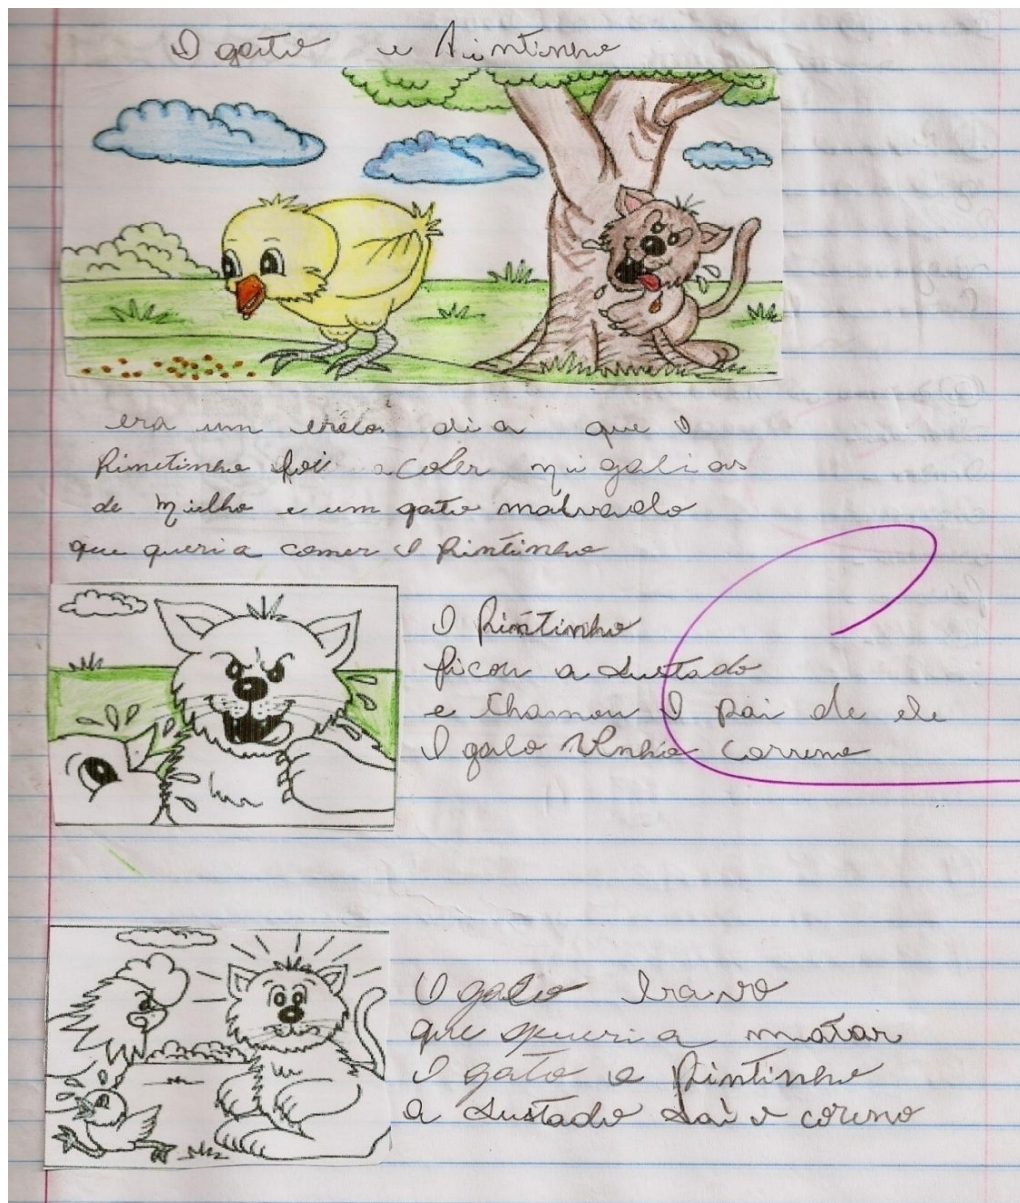 O gato e Pintinho
era um belo dia que O
Pintinho foi a coler migalias
de milho e um gato malvado
que queria comer O Pintinho
O Pintinho
ficou a sustado
e Chamou O pai de ele
O galo Vinhe correno
O galo bravo
que queria matar
O gato e Pintinho
a sustado saiu coreno